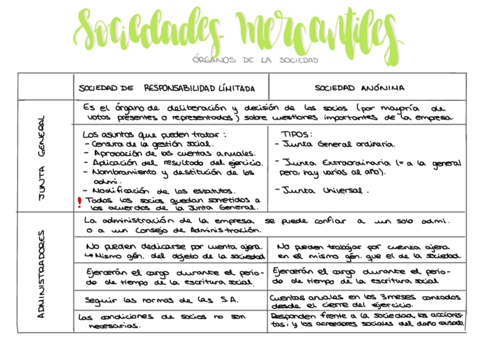 Sociedades Mercantiles
ÓRGANOS DE LA SOCIEDAD
SOCIEDAD DE RESPONSABILIDAD LIMITADA
SOCIEDAD ANÓNIMA
JUNTA GENERAL
Es el órgano de deliberación y decisión de los socios (por mayoría de
votos presentes o representados) sobre cuestiones importantes de la empresa
Los asuntos que pueden tratar:
- Censura de la gestión social.
- Aprobación de las cuentas anuales.
- Aplicación del resultado del ejercicio.
- Nombramiento y destitución de los
admi.
- Modificación de los estatutos.
! Todos los socios quedan sometidos a
los acuerdos de la Junta General.
TIPOS:
- Junta General ordinaria.
- Junta Extraordinaria (= a la general
pero hay varias al año).
- Junta Universal.
ADMINISTRADORES
La administración de la empresa se puede confiar a un solo admi.
o a un Consejo de Administración.
No pueden dedicarse por cuenta ajena
↳ Mismo gén. del objeto de la sociedad
No pueden trabajar por cuenta ajena
en el mismo gén. que el de la sociedad.
Ejercerán el cargo durante el perio-
do de tiempo de la escritura social
Ejercerán el cargo durante el perio-
do de tiempo de la escritura social.
Seguir las normas de las S.A.
Cuentas anuales en los 3 meses contados
desde el cierre del ejercicio.
Las condiciones de socios no son
necesarias.
Responden frente a la sociedad, los accionis-
tas, y los acreedores sociales del daño causado.